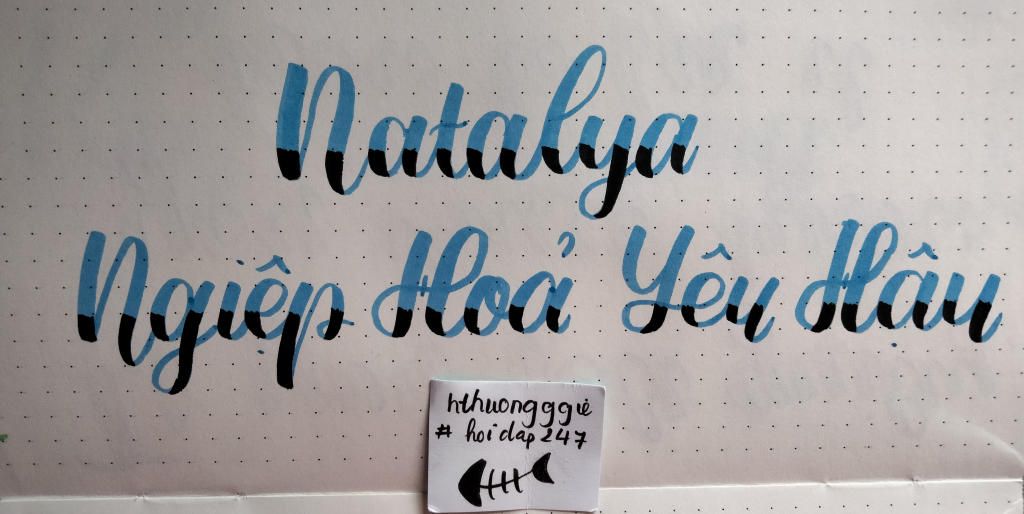 Natalya
Ngiệp Hoả Yêu Hậu
hthuongggiè
# hoidap247